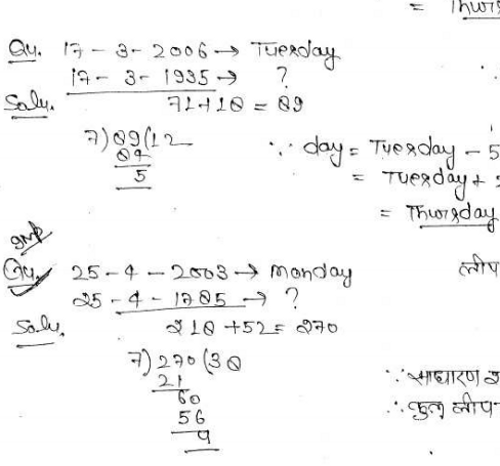 = Thurs
Qu. 17 - 3 - 2006 → Tuesday
17 - 3 - 1935 → ?
Solu. 71 + 18 = 89
7) 89 (12
84
5
∵ day = Tuesday - 5
= Tuesday +
= Thursday
Imp
Qu. 25 - 4 - 2003 → Monday
25 - 4 - 1785 → ?
Solu. 218 + 52 = 270
7) 270 (38
21
60
56
4
लीप
∵ साधारण व
∴ कुल लीप